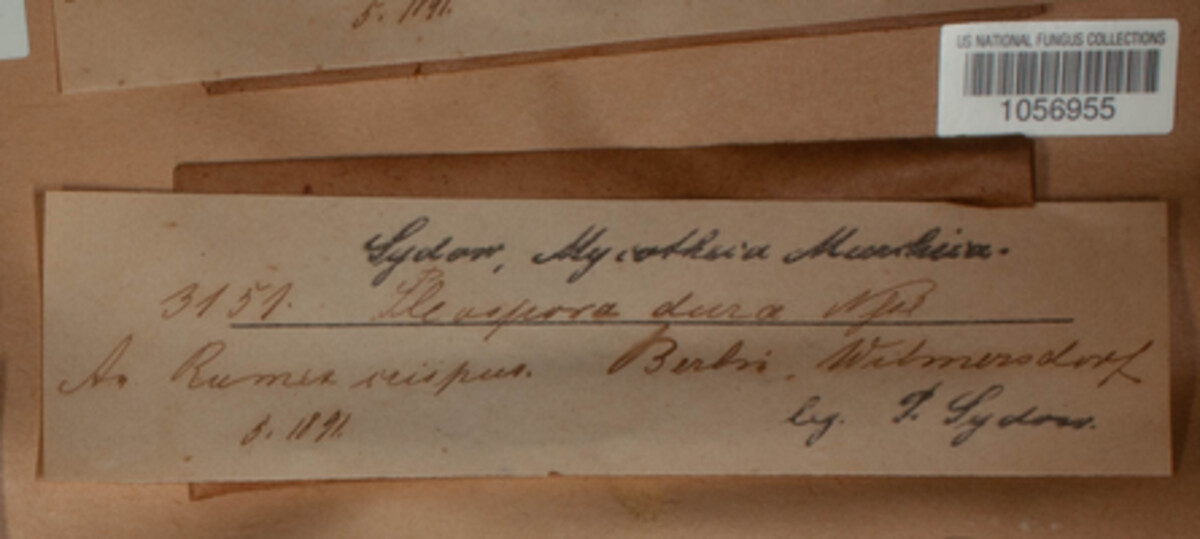 5. 1891.
US NATIONAL FUNGUS COLLECTIONS
1056955
Sydow, Mycotheca Marchica.
3151. Pleospora dura Njsl
An Rumex crispus. Berlin, Wilmersdorf
5. 1891.
leg. P. Sydow.